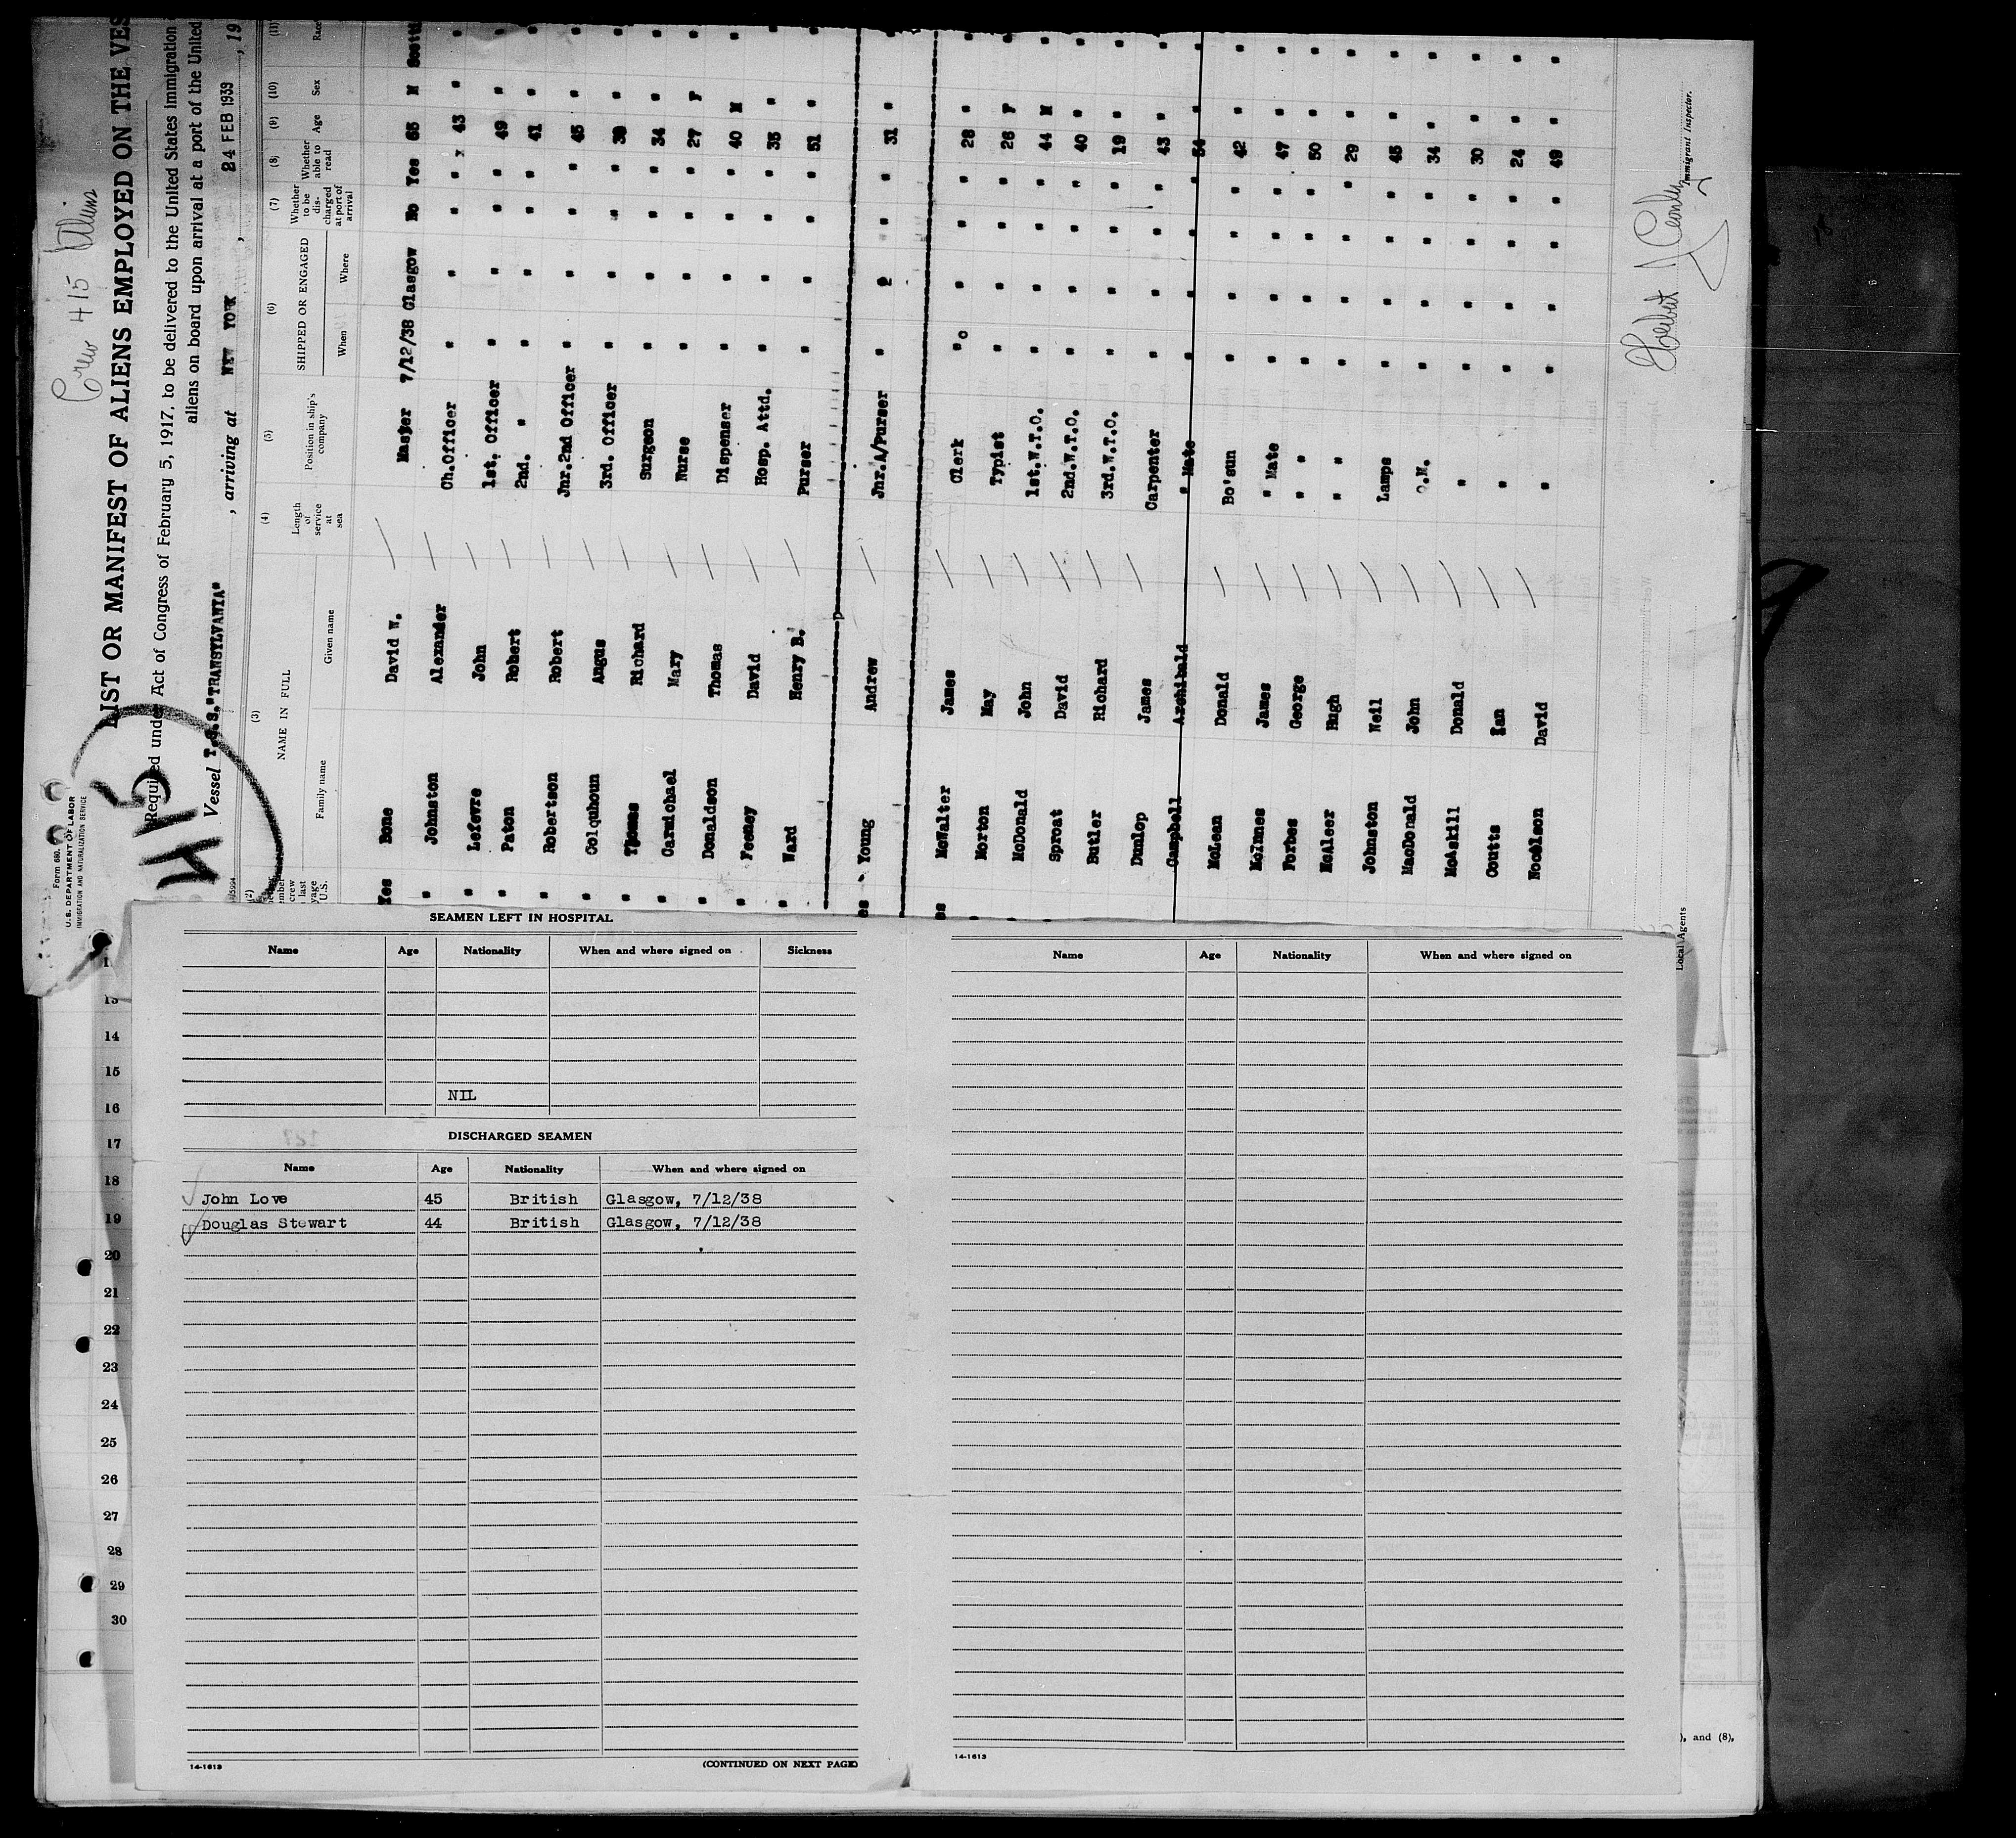 Crew 415 Aliens
Form 680
U.S. DEPARTMENT OF LABOR
IMMIGRATION AND NATURALIZATION SERVICE
415
LIST OR MANIFEST OF ALIENS EMPLOYED ON THE VES
Required under Act of Congress of February 5, 1917, to be delivered to the United States Immigration
aliens on board upon arrival at a port of the United
Vessel T.S.S."TRANSYLVANIA" , arriving at NEW YORK , 24 FEB 1939 , 19
(2) (3) (4) (5) (6) (7) (8) (9) (10) (11)
NAME IN FULL
Family name Given name
Length of service at sea
Position in ship's company
SHIPPED OR ENGAGED
When Where
Whether to be discharged at port of arrival
Whether able to read
Age
Sex
Race
Yes Bone David W. Master 7/12/38 Glasgow No Yes 65 M Scotti
" Johnston Alexander Ch.Officer " " " " 43 " "
" Lefevre John 1st. Officer " " " " 49 " "
" Paton Robert 2nd. " " " " " 41 " "
" Robertson Robert Jnr.2nd Officer " " " " 45 " "
" Colquhoun Angus 3rd. Officer " " " " 38 " "
" Thomas Richard Surgeon " " " " 34 " "
" Carmichael Mary Nurse " " " " 27 F "
" Donaldson Thomas Dispenser " " " " 40 M "
" Feeney David Hosp. Attd. " " " " 35 " "
" Ward Henry B. Purser " " " " 51 " "
es Young Andrew Jnr.A/Purser " " " " 31 " "
es McWalter James Clerk " " " " 28 " "
" Morton May Typist " " " " 26 F "
" McDonald John 1st.W.T.O. " " " " 44 M "
Sproat David 2nd.W.T.O. " " " " 40 " "
Butler Richard 3rd.W.T.O. " " " " 19 " "
Dunlop James Carpenter " " " " 43 " "
Campbell Archibald " Mate " " " " 54 " "
McLean Donald Bo'sun " " " " 42 " "
McInnes James " Mate " " " " 47 " "
Forbes George " " " " " " 50 " "
McAleer Hugh " " " " " " 29 " "
Johnston Neil Lamps " " " " 45 " "
MacDonald John Q.M. " " " " 34 " "
McAskill Donald " " " " " 30 " "
Coutts Ian " " " " " 24 " "
Nocolson David " " " " " 49 " "
Immigrant Inspector.
Local Agents
SEAMEN LEFT IN HOSPITAL
Name Age Nationality When and where signed on Sickness
NIL
DISCHARGED SEAMEN
Name Age Nationality When and where signed on
John Love 45 British Glasgow, 7/12/38
Douglas Stewart 44 British Glasgow, 7/12/38
14-1613
(CONTINUED ON NEXT PAGE)
Name Age Nationality When and where signed on
14-1613
14
15
16
17
18
19
20
21
22
23
24
25
26
27
28
29
30
), and (8),